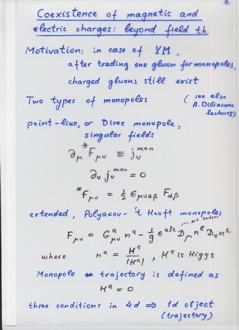 Coexistence of magnetic and
electric charges: beyond field th.
Motivation: in case of YM,
after trading one gluon for monopoles,
charged gluons still exist
Two types of monopoles (see also
A. DiGiacomo lectures)
point-like, or Dirac monopole,
singular fields
∂μ *Fμν ≡ jν^mon
∂ν jν^mon = 0
*Fμν = ½ εμναβ Fαβ
extended, Polyakov-'t Hooft monopoles
Fμν = Gμν^a n^a - 1/g ε^abc Dμ n^b Dν n^c
where n^a = H^a/|H^a|, H^a is Higgs
Monopole trajectory is defined as
H^a = 0
three conditions in 4d ⇒ 1d object
(trajectory)